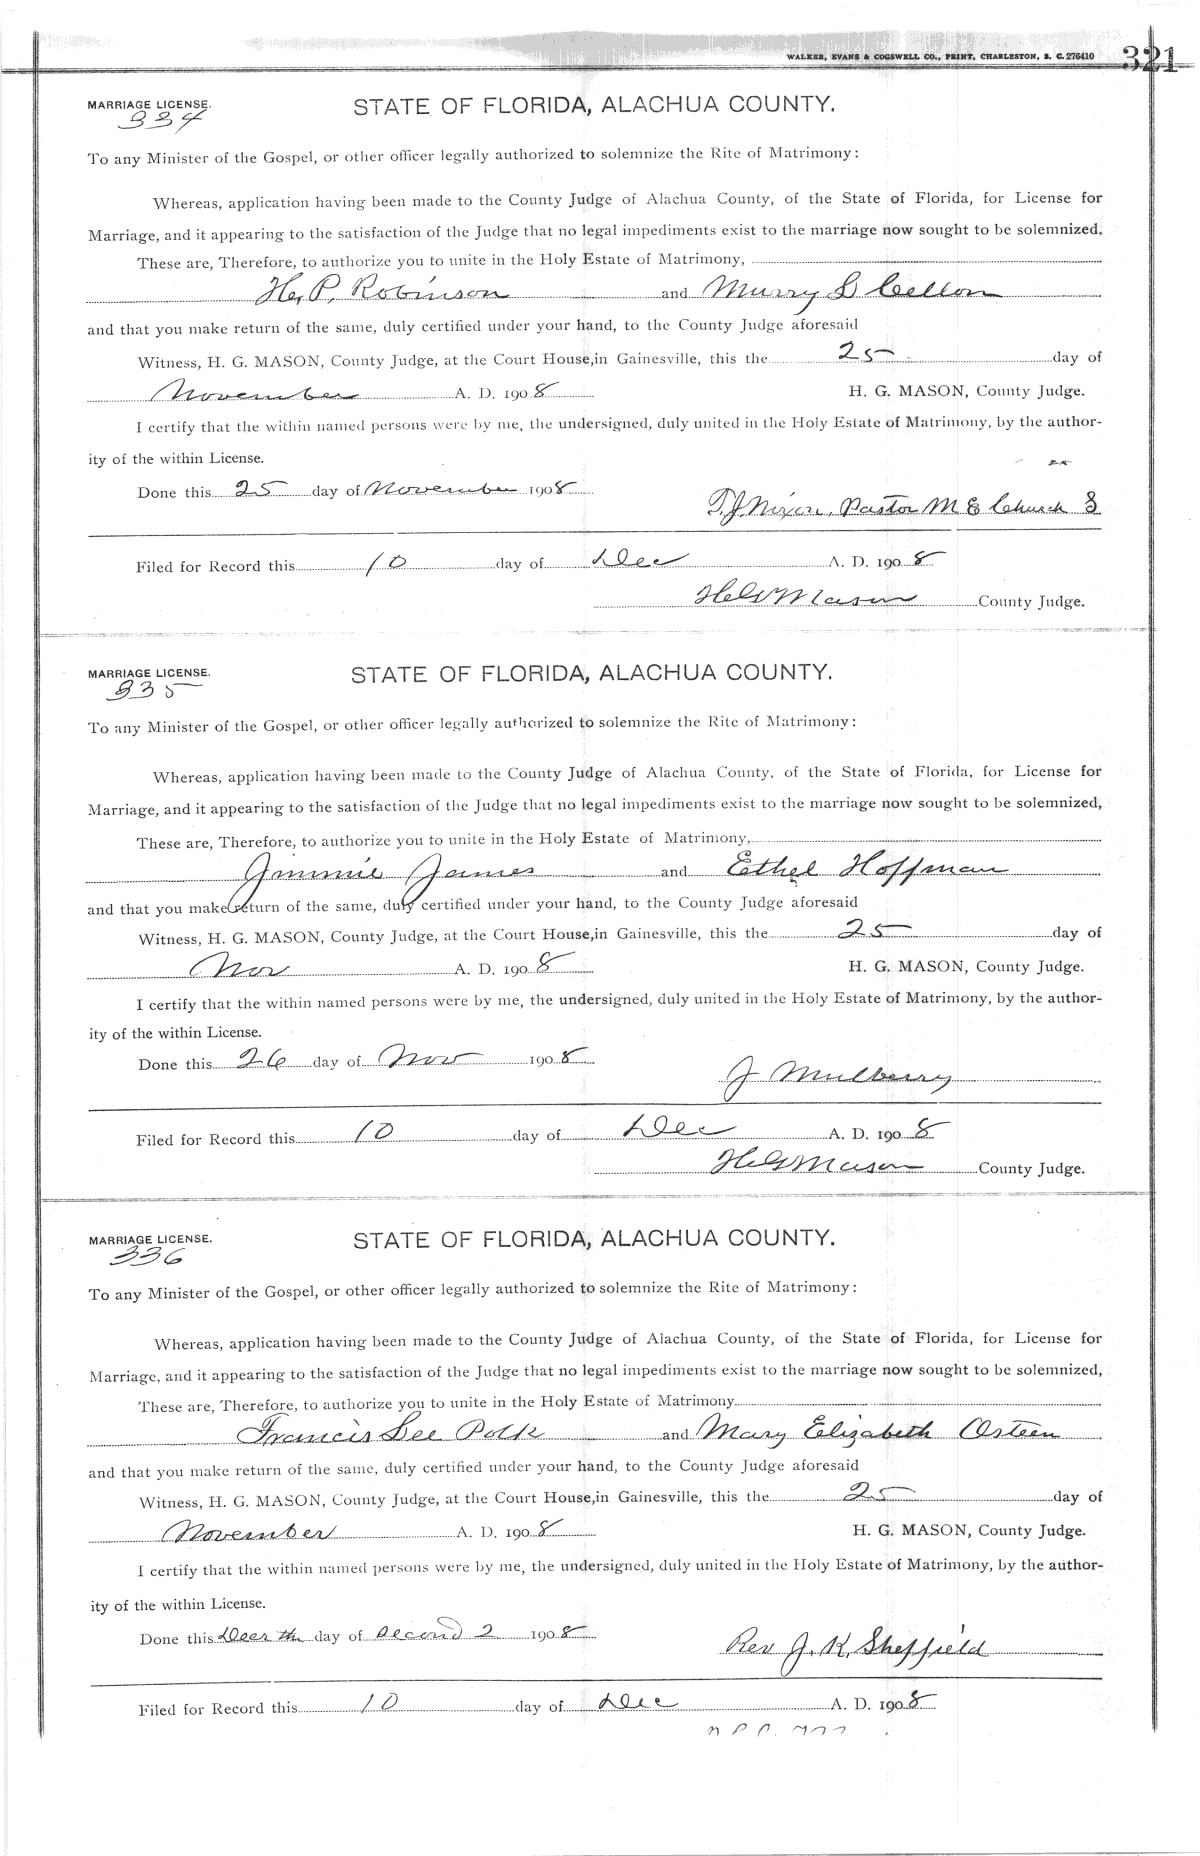 WALKER, EVANS & COGSWELL CO., PRINT, CHARLESTON, S. C. 276410 321
MARRIAGE LICENSE. STATE OF FLORIDA, ALACHUA COUNTY.
334
To any Minister of the Gospel, or other officer legally authorized to solemnize the Rite of Matrimony:
Whereas, application having been made to the County Judge of Alachua County, of the State of Florida, for License for
Marriage, and it appearing to the satisfaction of the Judge that no legal impediments exist to the marriage now sought to be solemnized.
These are, Therefore, to authorize you to unite in the Holy Estate of Matrimony,
H. P. Robinson and Murry L Cellon
and that you make return of the same, duly certified under your hand, to the County Judge aforesaid
Witness, H. G. MASON, County Judge, at the Court House,in Gainesville, this the 25 day of
November A. D. 1908 H. G. MASON, County Judge.
I certify that the within named persons were by me, the undersigned, duly united in the Holy Estate of Matrimony, by the author-
ity of the within License.
Done this 25 day of November 1908
T. J. Nixon, Pastor M E Church S
Filed for Record this 10 day of Dec A. D. 1908
H G Mason County Judge.
MARRIAGE LICENSE. STATE OF FLORIDA, ALACHUA COUNTY.
335
To any Minister of the Gospel, or other officer legally authorized to solemnize the Rite of Matrimony:
Whereas, application having been made to the County Judge of Alachua County, of the State of Florida, for License for
Marriage, and it appearing to the satisfaction of the Judge that no legal impediments exist to the marriage now sought to be solemnized,
These are, Therefore, to authorize you to unite in the Holy Estate of Matrimony,
Jimmie James and Ethel Hoffman
and that you make return of the same, duly certified under your hand, to the County Judge aforesaid
Witness, H. G. MASON, County Judge, at the Court House,in Gainesville, this the 25 day of
Nov A. D. 1908 H. G. MASON, County Judge.
I certify that the within named persons were by me, the undersigned, duly united in the Holy Estate of Matrimony, by the author-
ity of the within License.
Done this 26 day of Nov 1908
J Mulberry
Filed for Record this 10 day of Dec A. D. 1908
H G Mason County Judge.
MARRIAGE LICENSE. STATE OF FLORIDA, ALACHUA COUNTY.
336
To any Minister of the Gospel, or other officer legally authorized to solemnize the Rite of Matrimony:
Whereas, application having been made to the County Judge of Alachua County, of the State of Florida, for License for
Marriage, and it appearing to the satisfaction of the Judge that no legal impediments exist to the marriage now sought to be solemnized,
These are, Therefore, to authorize you to unite in the Holy Estate of Matrimony
Francis Lee Polk and Mary Elizabeth Osteen
and that you make return of the same, duly certified under your hand, to the County Judge aforesaid
Witness, H. G. MASON, County Judge, at the Court House,in Gainesville, this the 25 day of
November A. D. 1908 H. G. MASON, County Judge.
I certify that the within named persons were by me, the undersigned, duly united in the Holy Estate of Matrimony, by the author-
ity of the within License.
Done this day of Second 2 1908
Rev J. K. Sheffield
Filed for Record this 10 day of Dec A. D. 1908